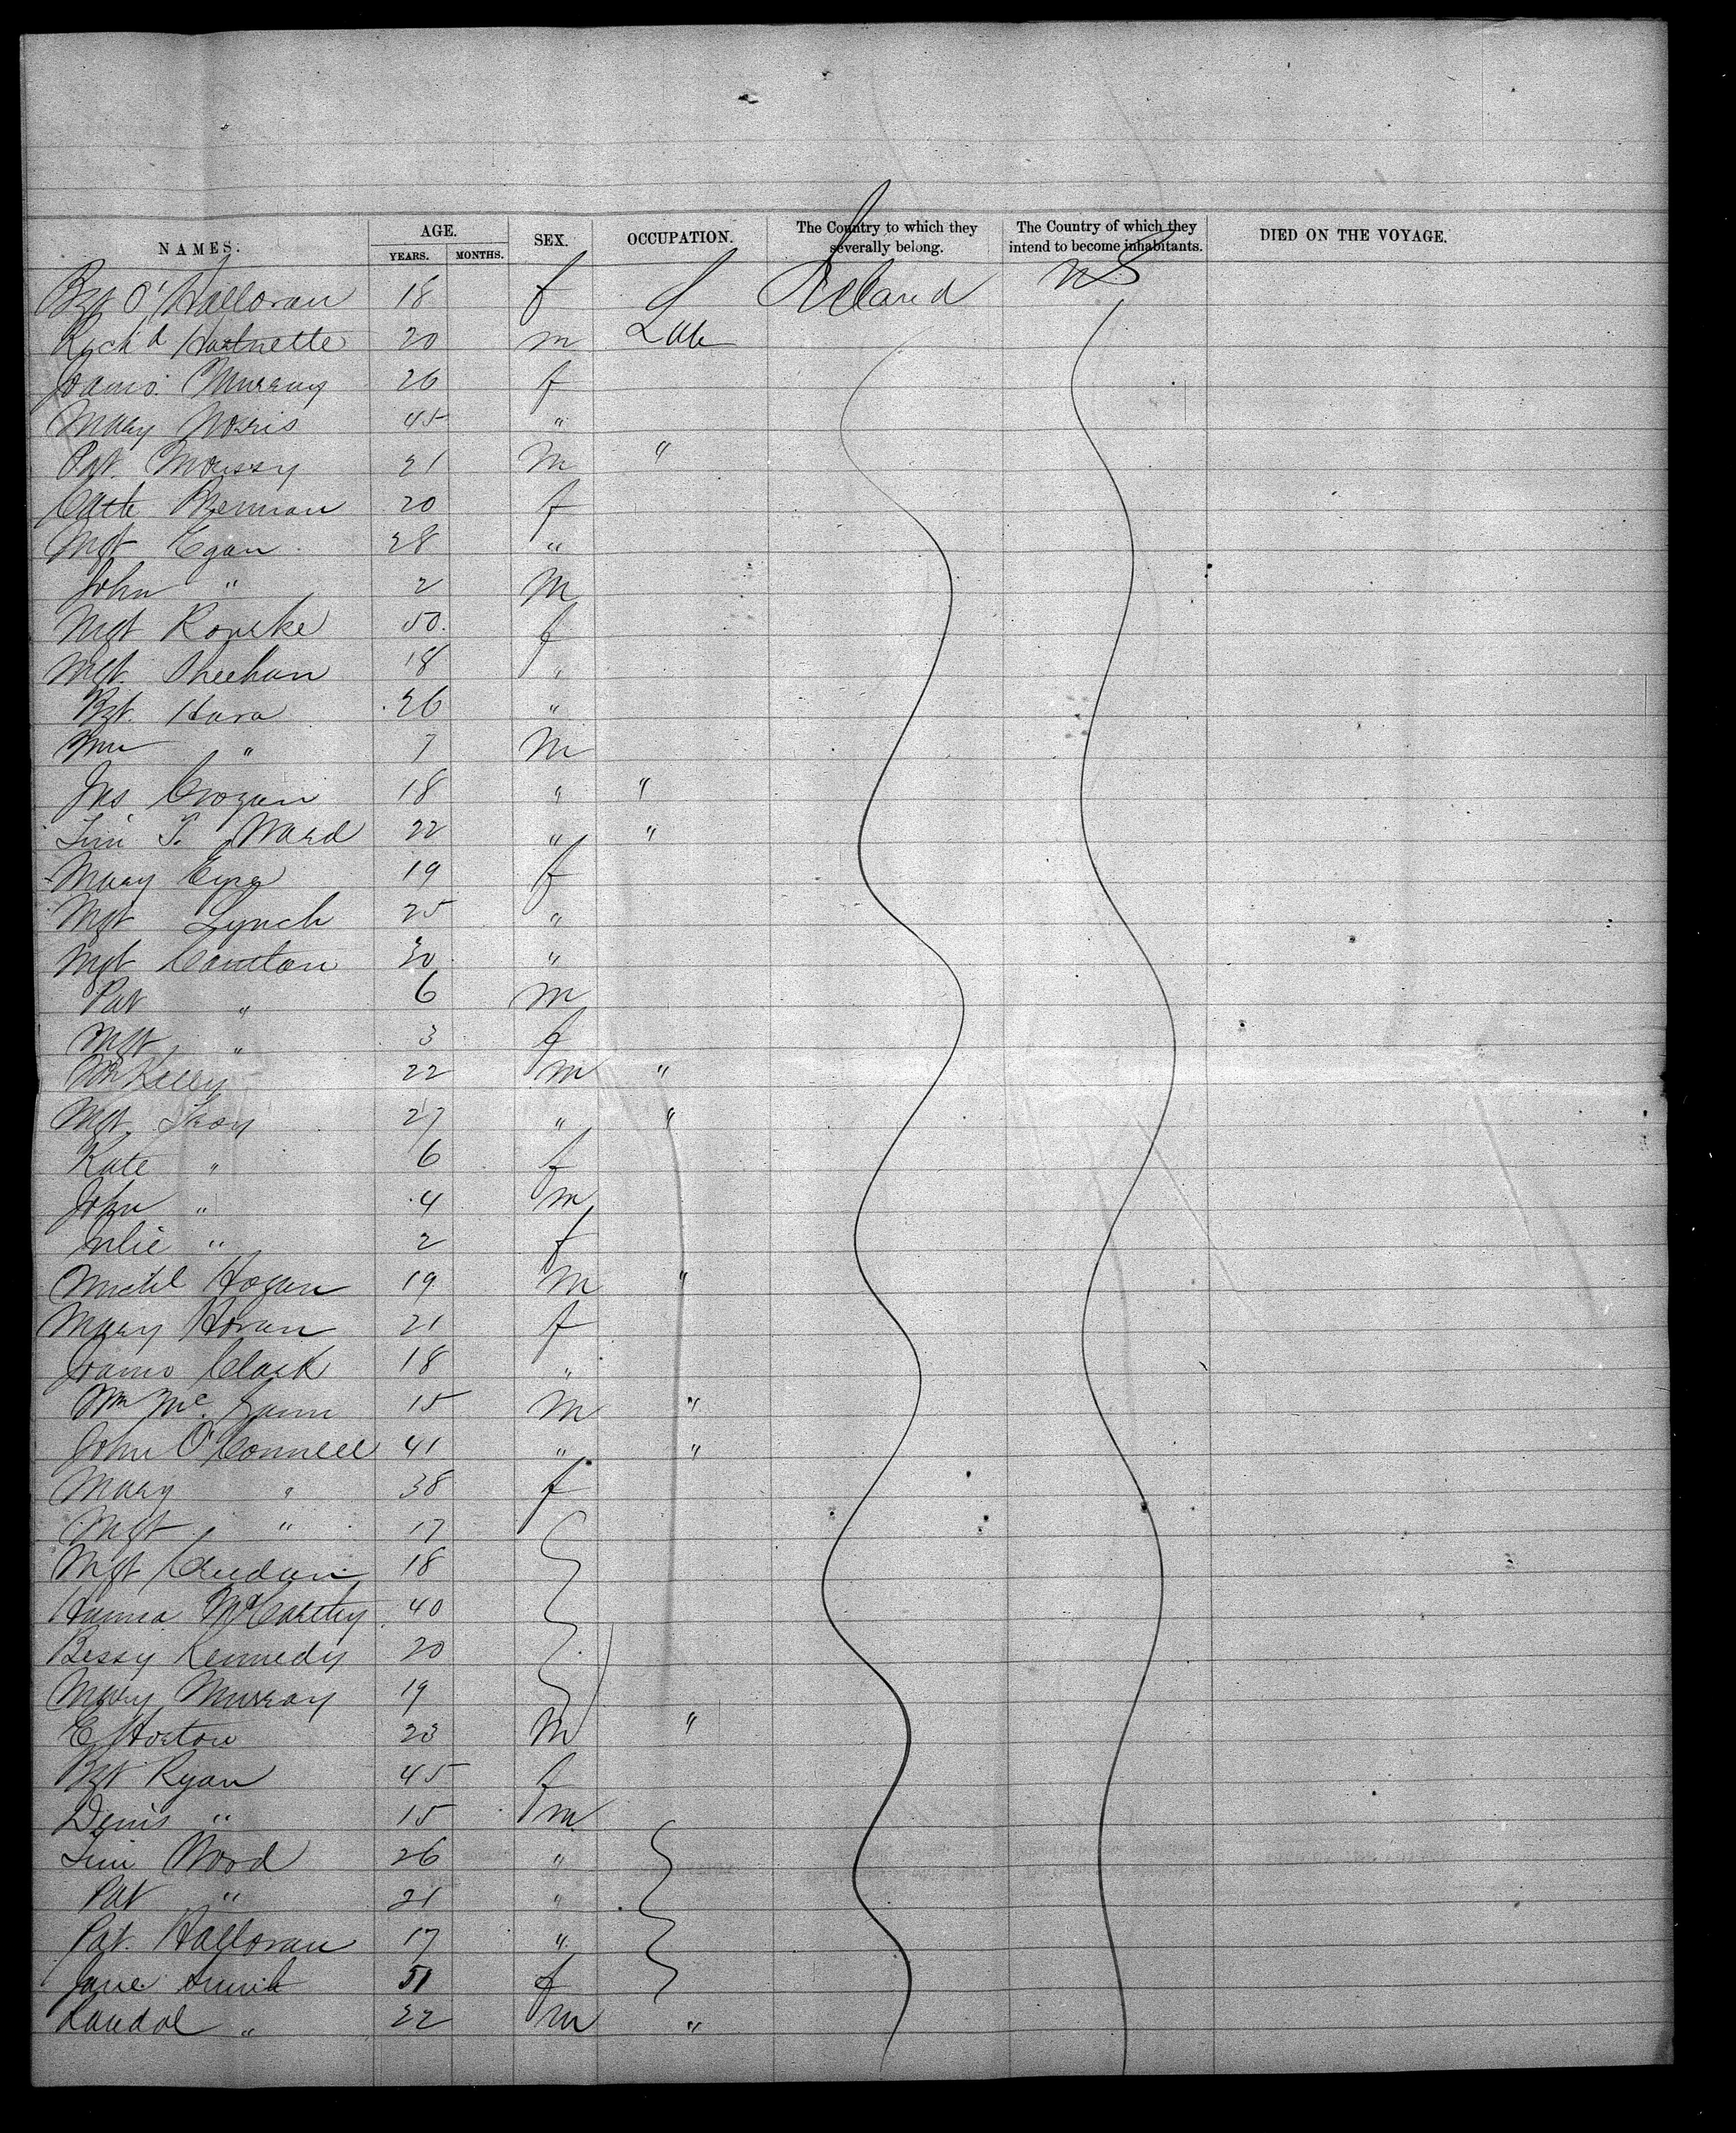 NAMES. AGE. YEARS. MONTHS. SEX. OCCUPATION. The Country to which they severally belong. The Country of which they intend to become inhabitants. DIED ON THE VOYAGE.
Bgt O'Halloran 18 f Ireland US
Richd Hartnette 20 m Lab
Murray 26 f
Mary Norris 45 "
Pat 21 M "
Cath Brennan 20 f
Mgt Egan 28 "
John " 2 M
Mgt Rourke 50 f
Mgt Sheehan 18 "
Bgt. Hara 26 "
Wm " 7 M
Jas Crogan 18 " "
Tim T. Ward 22 " "
Mary 19 f
Mgt Lynch 25 "
Mgt 30 "
Pat " 6 M
Mgt " 3 f
Wm Kelly 22 m "
Mgt Troy 27 " "
Kate " 6 f
John " 4 m
Julie " 2 f
Michl Hogan 19 M "
Mary Horan 21 f
Clark 18 "
Wm Mc 15 M "
John O'Connell 41 " "
Mary " 38 f
Mgt " 17
Mgt 18
Hanna McCarthy 40
Bessy Kennedy 20
Mary Murray 19
E Horton 23 M "
Bgt Ryan 45 f
Denis " 15 m
Tim Wood 26 "
Pat " 21 "
Pat. Halloran 17 "
Jane Smith 51 f
Randol " 22 m "